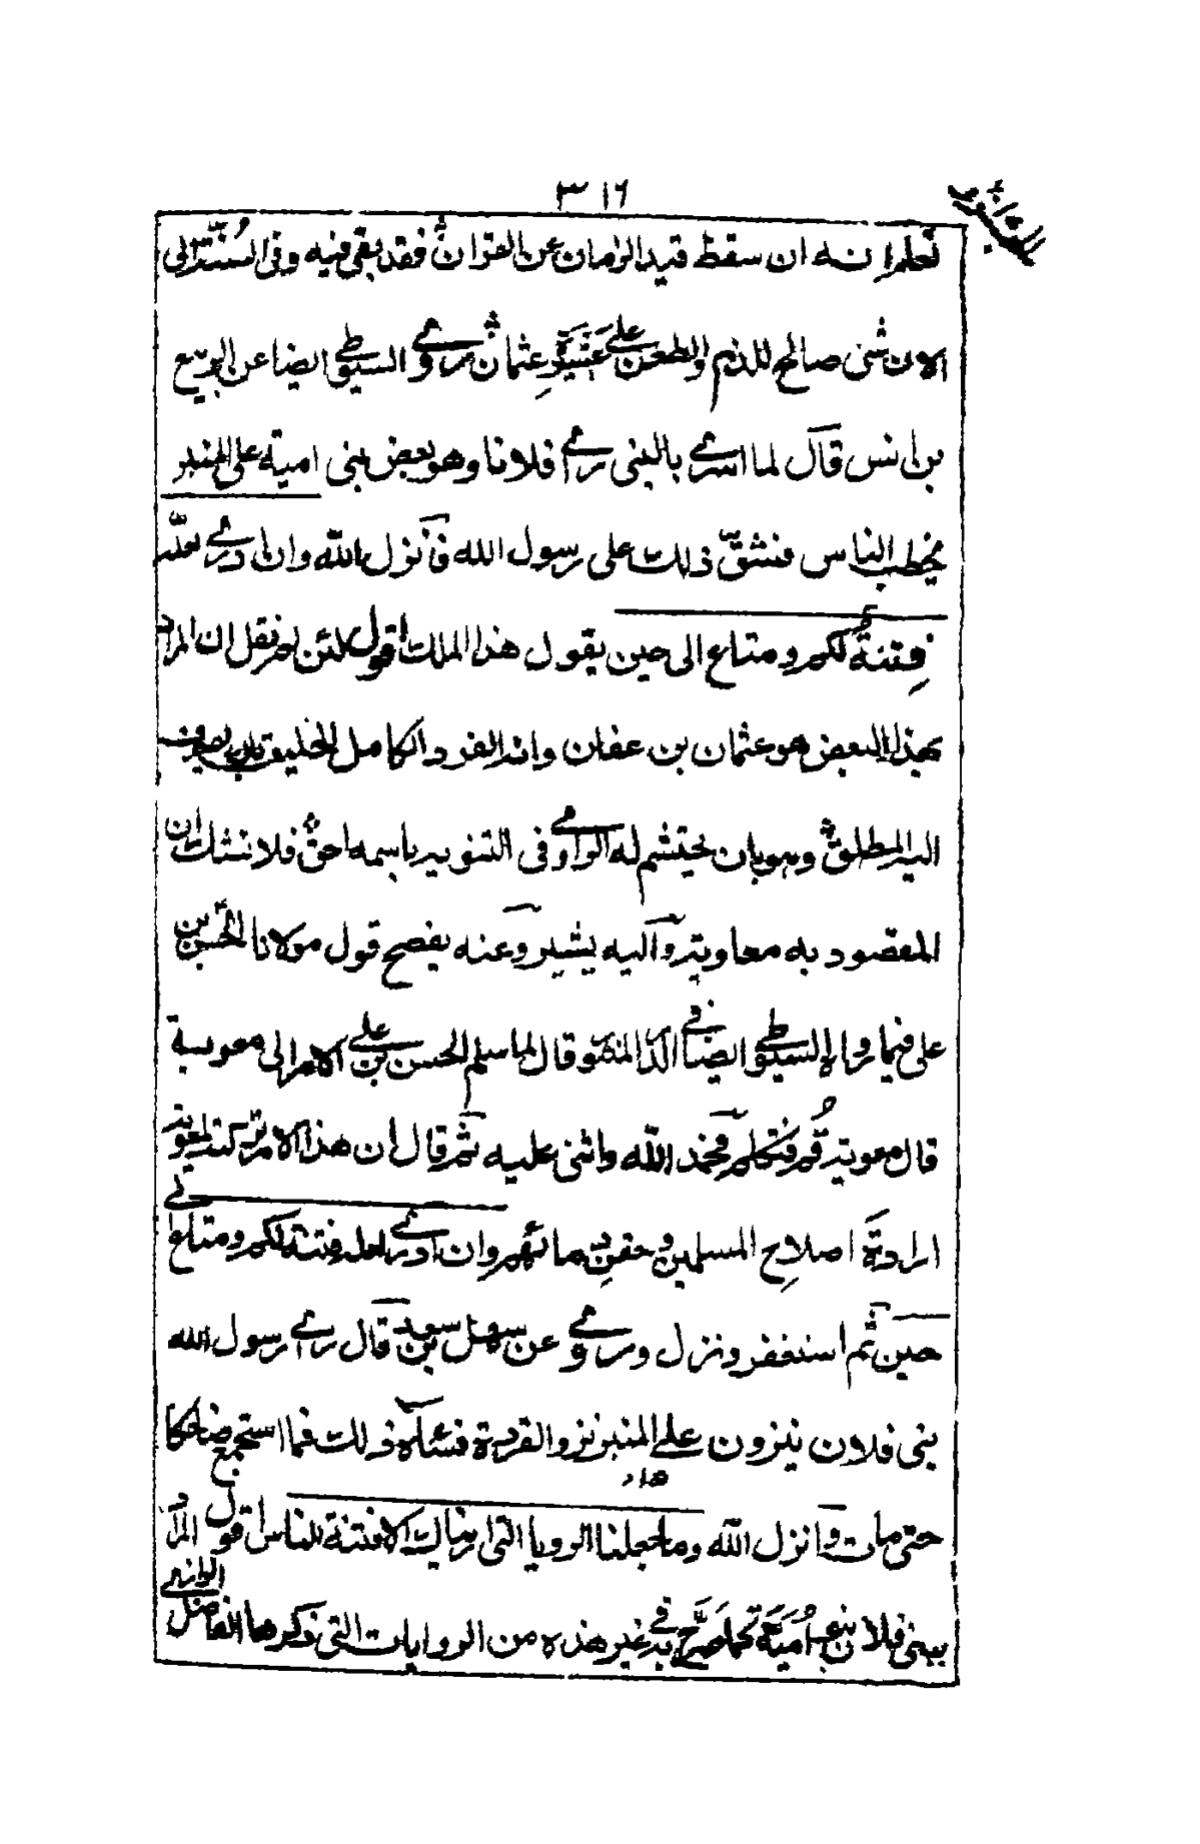 ٣١٦
تعلم انه ان سقط قيد الزمان عن القران فقد بقى فيه وفى السنة الى
الان شئ صالح للذم والطعن على عشيرة عثمان وروى السيوطى ايضا عن الربيع
بن انس قال لما اسرى بالنبى راى فلانا وهو بعض بنى امية على المنبر
يخطب الناس فشق ذلك على رسول الله فانزل الله وان ادرى لعله
فتنة لكم ومتاع الى حين يقول هذا الملك اقول لئن لم نقل ان المراد
بهذا البعض هو عثمان بن عفان وانه الفرد الكامل الخليق بان يصرف
اليه المطلق وهو بان يحتشم له الراوى فى التنويه باسمه احق فلا نشك ان
المقصود به معاوية واليه يشير وعنه يفصح قول مولانا الحسن بن
على فيما رواه السيوطى ايضا فى الدر المنثور قال لما سلم الحسن بن على الامر الى معوية
قال معوية قم فتكلم فحمد الله واثنى عليه ثم قال ان هذا الامر تركته لمعوية
ارادة اصلاح المسلمين وحقن دمائهم وان ادرى لعله فتنة لكم ومتاع الى
حين ثم استغفر ونزل وروى عن سهل بن سعد قال راى رسول الله
بنى فلان ينزون على المنبر نزو القردة فسآءه ذلك فما استجمع ضاحكا
حتى مات وانزل الله وما جعلنا الرويا التى اريناك الا فتنة للناس اقول المراد
ببنى فلان بنو امية كما صرح به فى غير هذه من الروايات التى ذكرها الفاضل